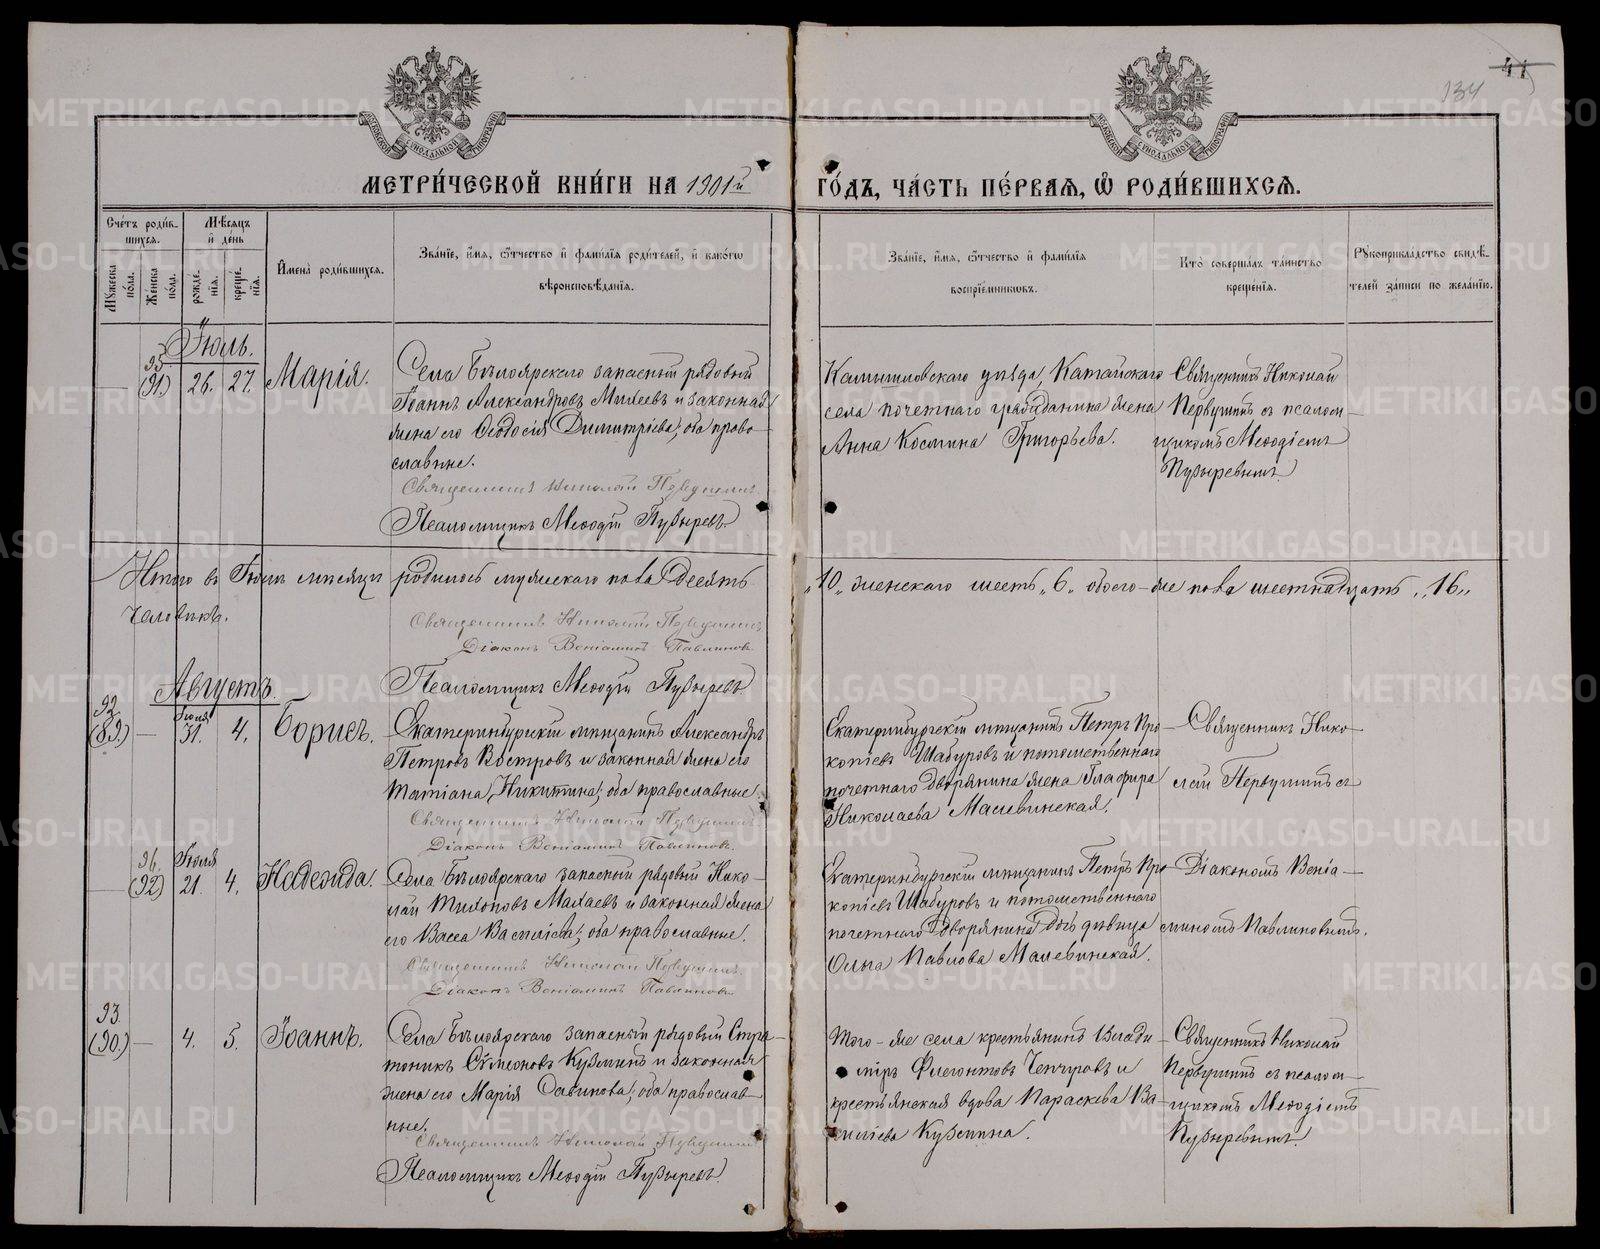 134
41
МЕТРИ́ЧЕСКОЙ КНИ́ГИ НА 1901й
ГО́ДЪ, ЧА́СТЬ ПЕ́РВАЯ, Ѿ РОДИ́ВШИХСЯ.
Сче́тъ роди́в-
шихся.
Мѣсяцъ
и́ де́нь
Му́жеска
по́ла.
Же́нска
по́ла.
рожде́-
нїя.
креще́-
нїя.
И҆мена̀ роди́вшихся.
Зва́нїе, и҆́мя, ѻ҆́тчество и҆ фами́лїя роди́телей, и҆ како́гѡ
вѣроисповѣ́данїя.
Зва́нїе, и҆́мя, ѻ҆́тчество и҆ фами́лїя
воспрїе́мникѡвъ.
Кто̀ соверша́лъ та́инство
креще́нїя.
Рꙋкоприкла́дство свидѣ́-
телей за́писи по жела́нїю.
Іюль.
95
(91)
26.
27.
Марія.
Села Бѣлоярскаго запасный рядовый
Іоаннъ Александровъ Михеевъ и законная
жена его Ѳеодосія Димитріева; оба право-
славные.
Священникъ Николай Первушинъ
Псаломщикъ Меѳодій Пузыревъ
Камышловскаго уѣзда, Катайскаго
села почетнаго гражданина жена
Анна Космина Григорьева.
Священникъ Николай
Первушинъ съ псалом-
щикомъ Меѳодіемъ
Пузыревымъ
Итого въ Іюлѣ мѣсяцѣ родилось мужескаго пола десять
„10„ женскаго шесть „6„ обоего-же пола шестнадцать „16„
человѣкъ.
Священникъ Николай Первушинъ
Діаконъ Веніаминъ Павлиновъ
Псаломщикъ Меѳодій Пузыревъ
Августъ.
92
(89)
Іюля
31.
4.
Борисъ.
Екатеринбургскій мѣщанинъ Александръ
Петровъ Востровъ и законная жена его
Татіана Никитина; оба православные.
Священникъ Николай Первушинъ
Діаконъ Веніаминъ Павлиновъ.
Екатеринбургскій мѣщанинъ Петръ Про-
копіевъ Шабуровъ и потомственнаго
почетнаго дворянина жена Глафира
Николаева Малевинская.
Священникъ Нико-
лай Первушинъ съ
96.
(92)
Іюля
21.
4.
Надежда.
Села Бѣлоярскаго запасный рядовый Нико-
лай Тихоновъ Махаевъ и законная жена
его Васса Василіева; оба православные.
Священникъ Николай Первушинъ
Діаконъ Веніаминъ Павлиновъ
Екатеринбургскій мѣщанинъ Петръ Про-
копіевъ Шабуровъ и потомственнаго
почетнаго дворянина дочь дѣвица
Ольга Павлова Малевинская.
Діакономъ Веніа-
миномъ Павлиновымъ.
93.
(90)
4.
5.
Іоаннъ.
Села Бѣлоярскаго запасный рядовый Стра-
тоникъ Сѵмеоновъ Кузминъ и законная
жена его Марія Савинова; оба православ-
ные.
Священникъ Николай Первушинъ
Псаломщикъ Меѳодій Пузыревъ.
Того-же села крестьянинъ Влади-
міръ Флегонтовъ Чепуровъ и
крестьянская вдова Параскева Ва-
силіева Кузмина.
Священникъ Николай
Первушинъ съ псалом-
щикомъ Меѳодіемъ
Пузыревымъ.